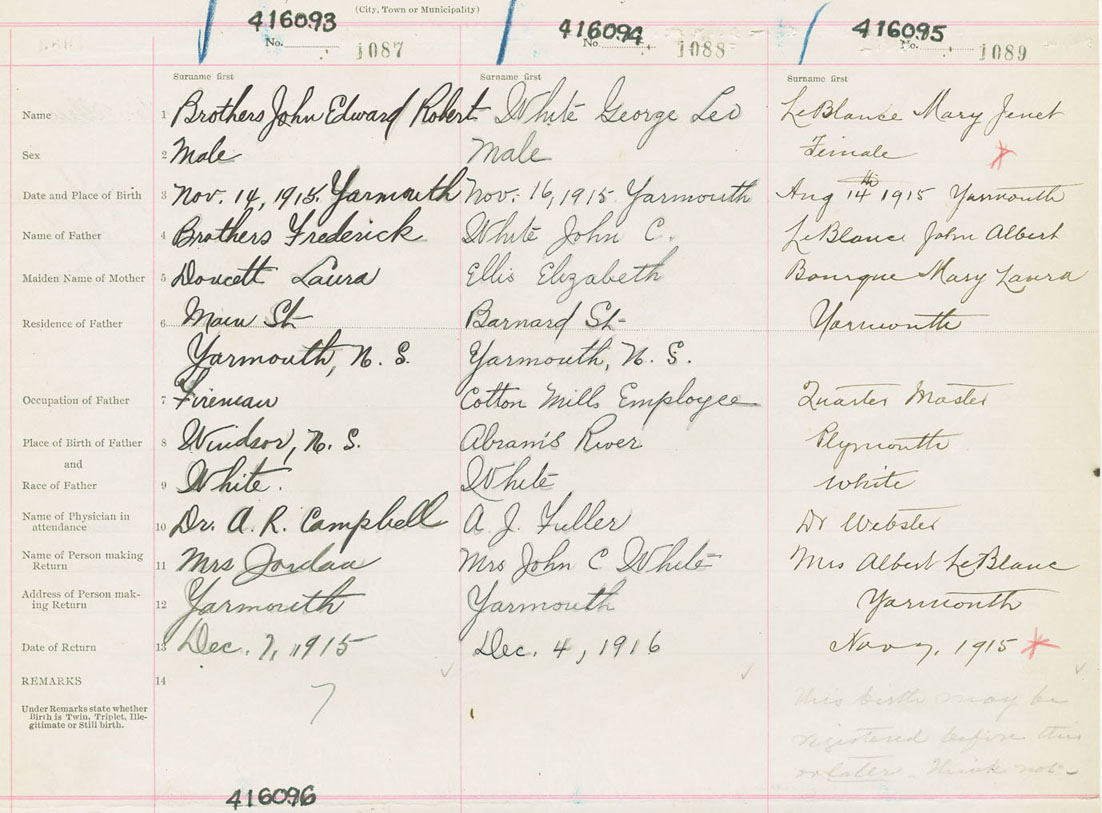 (City, Town or Municipality)
416093 416094 416095
No. 1087 No. 1088 No. 1089
Surname first Surname first Surname first
Name 1 Brothers John Edward Robert White George Leo LeBlance Mary Jenet
Sex 2 Male Male Female
Date and Place of Birth 3 Nov. 14, 1915. Yarmouth Nov. 16, 1915 Yarmouth Aug 14th 1915 Yarmouth
Name of Father 4 Brothers Frederick White John C. LeBlanc John Albert
Maiden Name of Mother 5 Doucett Laura Ellis Elizabeth Bourque Mary Laura
Residence of Father 6 Main St Barnard St- Yarmouth
Yarmouth, N. S. Yarmouth, N. S.
Occupation of Father 7 Fireman Cotton Mills Employee Quarter Master
Place of Birth of Father 8 Windsor, N. S. Abram's River Plymouth
and
Race of Father 9 White. White White
Name of Physician in
attendance 10 Dr. A. R. Campbell A. J. Fuller Dr Webster
Name of Person making
Return 11 Mrs Jordan Mrs John C White Mrs Albert LeBlanc
Address of Person mak-
ing Return 12 Yarmouth Yarmouth Yarmouth
Date of Return 13 Dec. 7, 1915 Dec. 4, 1916 Nov 7, 1915
REMARKS 14
7
Under Remarks state whether
Birth is Twin, Triplet, Ille-
gitimate or Still birth.
this birth may be
registered before this
or later. think not-
416096